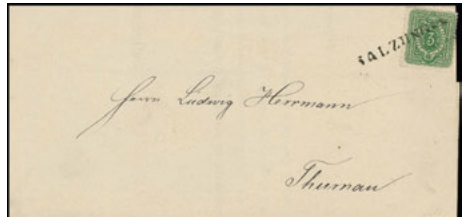 SALZUNGEN
3
Herrn Ludwig Herrmann
Thurnau